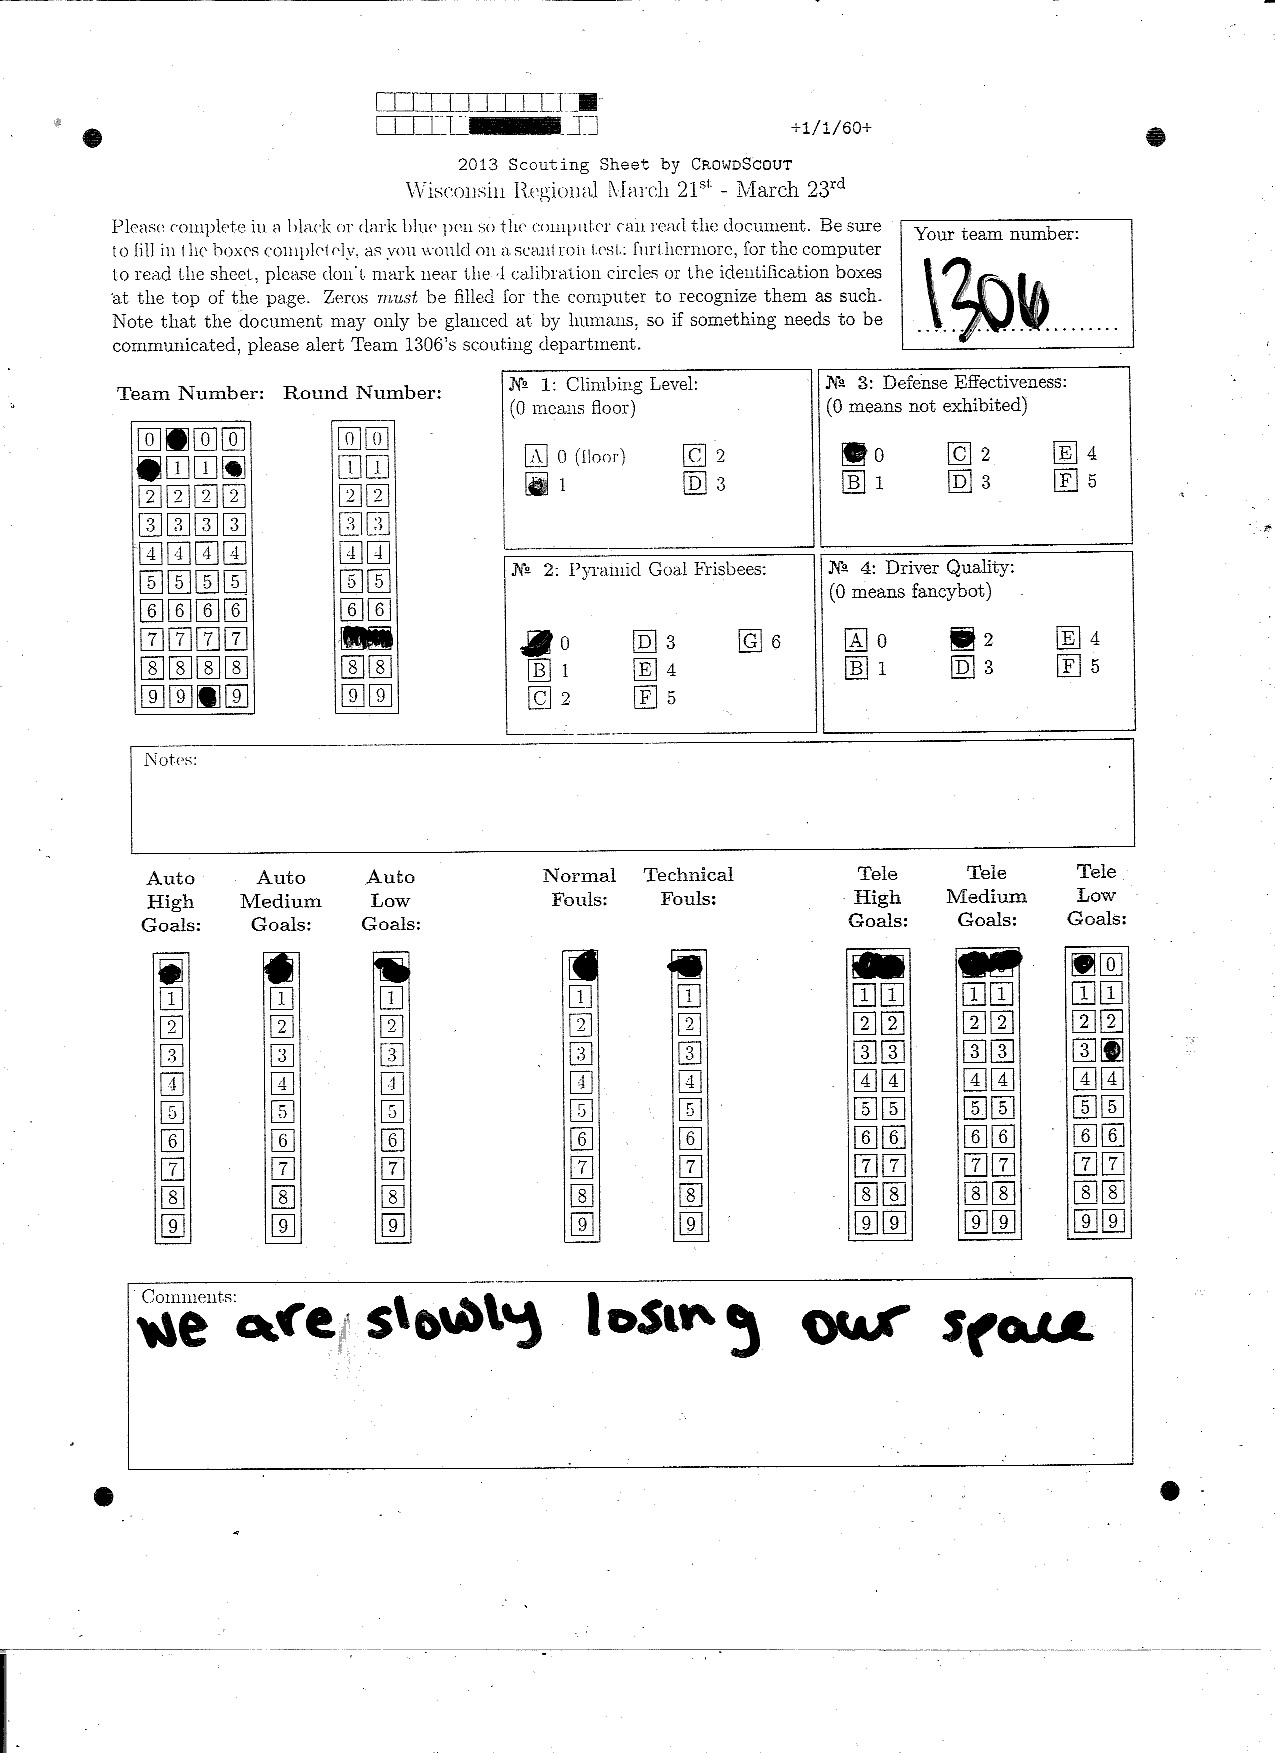 +1/1/60+
2013 Scouting Sheet by CROWDSCOUT
Wisconsin Regional March 21st - March 23rd
Please complete in a black or dark blue pen so the computer can read the document. Be sure
to fill in the boxes completely, as you would on a scantron test; furthermore, for the computer
to read the sheet, please don't mark near the 4 calibration circles or the identification boxes
at the top of the page. Zeros must be filled for the computer to recognize them as such.
Note that the document may only be glanced at by humans, so if something needs to be
communicated, please alert Team 1306's scouting department.
Your team number:
1306
Team Number: Round Number:
0 0 0 0 0
1 1 1 1
2 2 2 2 2 2
3 3 3 3 3 3
4 4 4 4 4 4
5 5 5 5 5 5
6 6 6 6 6 6
7 7 7 7
8 8 8 8 8 8
9 9 9 9 9
№ 1: Climbing Level:
(0 means floor)
A 0 (floor) C 2
1 D 3
№ 3: Defense Effectiveness:
(0 means not exhibited)
0 C 2 E 4
B 1 D 3 F 5
№ 2: Pyramid Goal Frisbees:
0 D 3 G 6
B 1 E 4
C 2 F 5
№ 4: Driver Quality:
(0 means fancybot)
A 0 2 E 4
B 1 D 3 F 5
Notes:
Auto High Goals: Auto Medium Goals: Auto Low Goals: Normal Fouls: Technical Fouls: Tele High Goals: Tele Medium Goals: Tele Low Goals:
0
1 1 1 1 1 1 1 1 1 1 1
2 2 2 2 2 2 2 2 2 2 2
3 3 3 3 3 3 3 3 3 3
4 4 4 4 4 4 4 4 4 4 4
5 5 5 5 5 5 5 5 5 5 5
6 6 6 6 6 6 6 6 6 6 6
7 7 7 7 7 7 7 7 7 7 7
8 8 8 8 8 8 8 8 8 8 8
9 9 9 9 9 9 9 9 9 9 9
Comments:
we are slowly losing our space